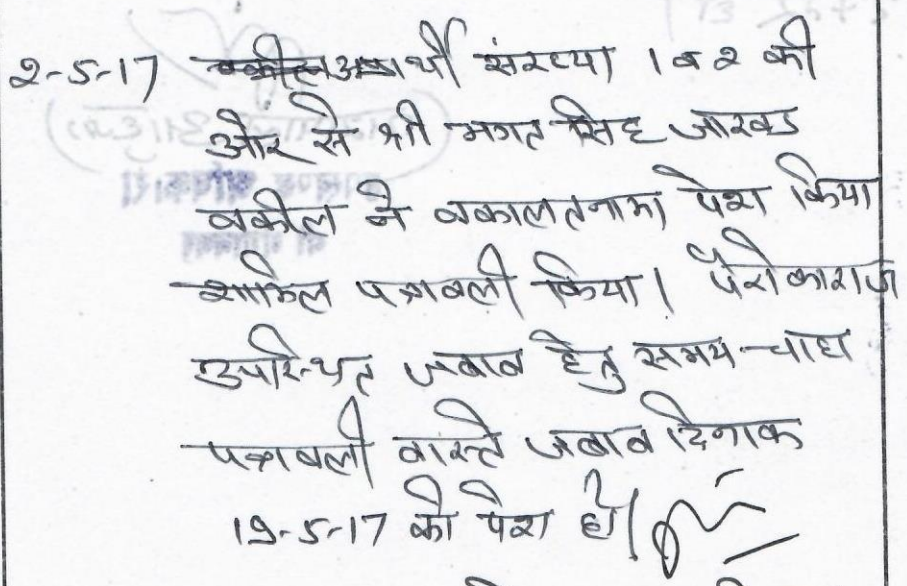 2-5-17 अप्रार्थी संख्या 1 व 2 की
ओर से श्री भगत सिंह जाखड
वकील ने वकालतनामा पेश किया
शामिल पत्रावली किया। पैरोकारान
उपस्थित जबाब हेतु समय चाहा
पत्रावली वास्ते जबाब दिनांक
19-5-17 को पेश हो।